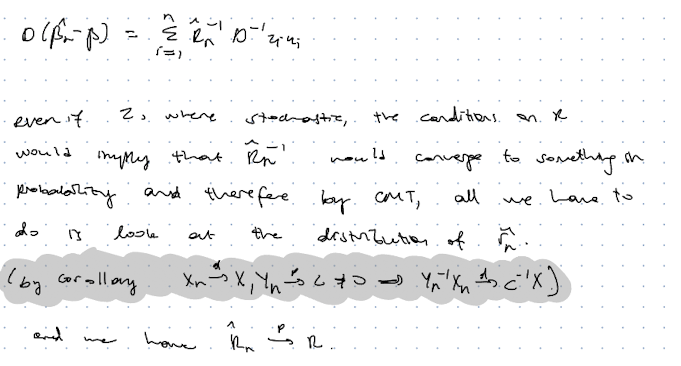 D(β̂ₙ-β) = Σⁿᵢ₌₁ R̂ₙ⁻¹ D⁻¹zᵢuᵢ
even if zᵢ where stochastic, the conditions on R
would imply that R̂ₙ⁻¹ would converge to something in
probability and therefore by CMT, all we have to
do is look at the distribution of r̂ₙ.
(by corollary Xₙ →ᵈ X, Yₙ →ᵖ c ≠ 0 ⇒ Yₙ⁻¹Xₙ →ᵈ c⁻¹X.)
and we have R̂ₙ →ᵖ R.